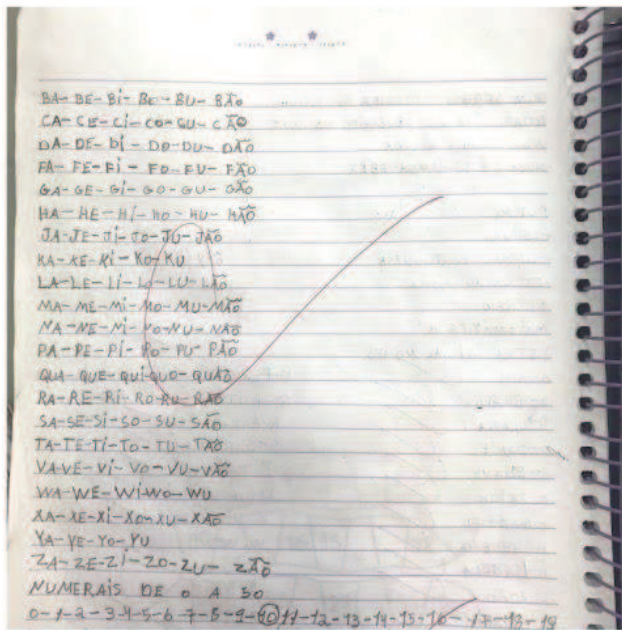 BA-BE-Bi-BE-BU-BÃO
CA-CE-Ci-CO-CU-CÃO
DA-DE-Di-DO-DU-DÃO
FA-FE-Fi-FO-FU-FÃO
GA-GE-Gi-GO-GU-GÃO
HA-HE-Hi-HO-HU-HÃO
JA-JE-Ji-JO-JU-JÃO
KA-KE-Ki-KO-KU
LA-LE-Li-LO-LU-LÃO
MA-ME-Mi-MO-MU-MÃO
NA-NE-Ni-NO-NU-NÃO
PA-PE-Pi-PO-PU-PÃO
QUA-QUE-QUi-QUO-QUÃO
RA-RE-Ri-RO-RU-RÃO
SA-SE-Si-SO-SU-SÃO
TA-TE-Ti-TO-TU-TÃO
VA-VE-Vi-VO-VU-VÃO
WA-WE-Wi-WO-WU
XA-XE-Xi-XO-XU-XÃO
YA-YE-YO-YU
ZA-ZE-Zi-ZO-ZU-ZÃO
NUMERAiS DE 0 A 50
0-1-2-3-4-5-6-7-8-9-10-11-12-13-14-15-16-17-18-19